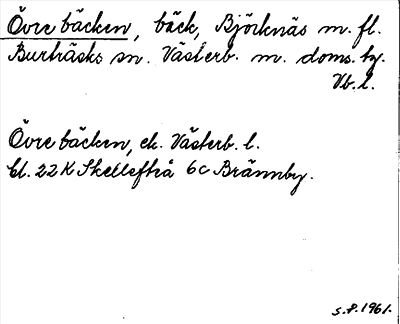 Övre bäcken, bäck, Björknäs m. fl.
Burträsks sn. Västerb. m. doms. hg.
Vb. l.
Övre bäcken, ek. Västerb. l.
bl. 22 K Skellefteå 6c Brännby.
S. P. 1961.